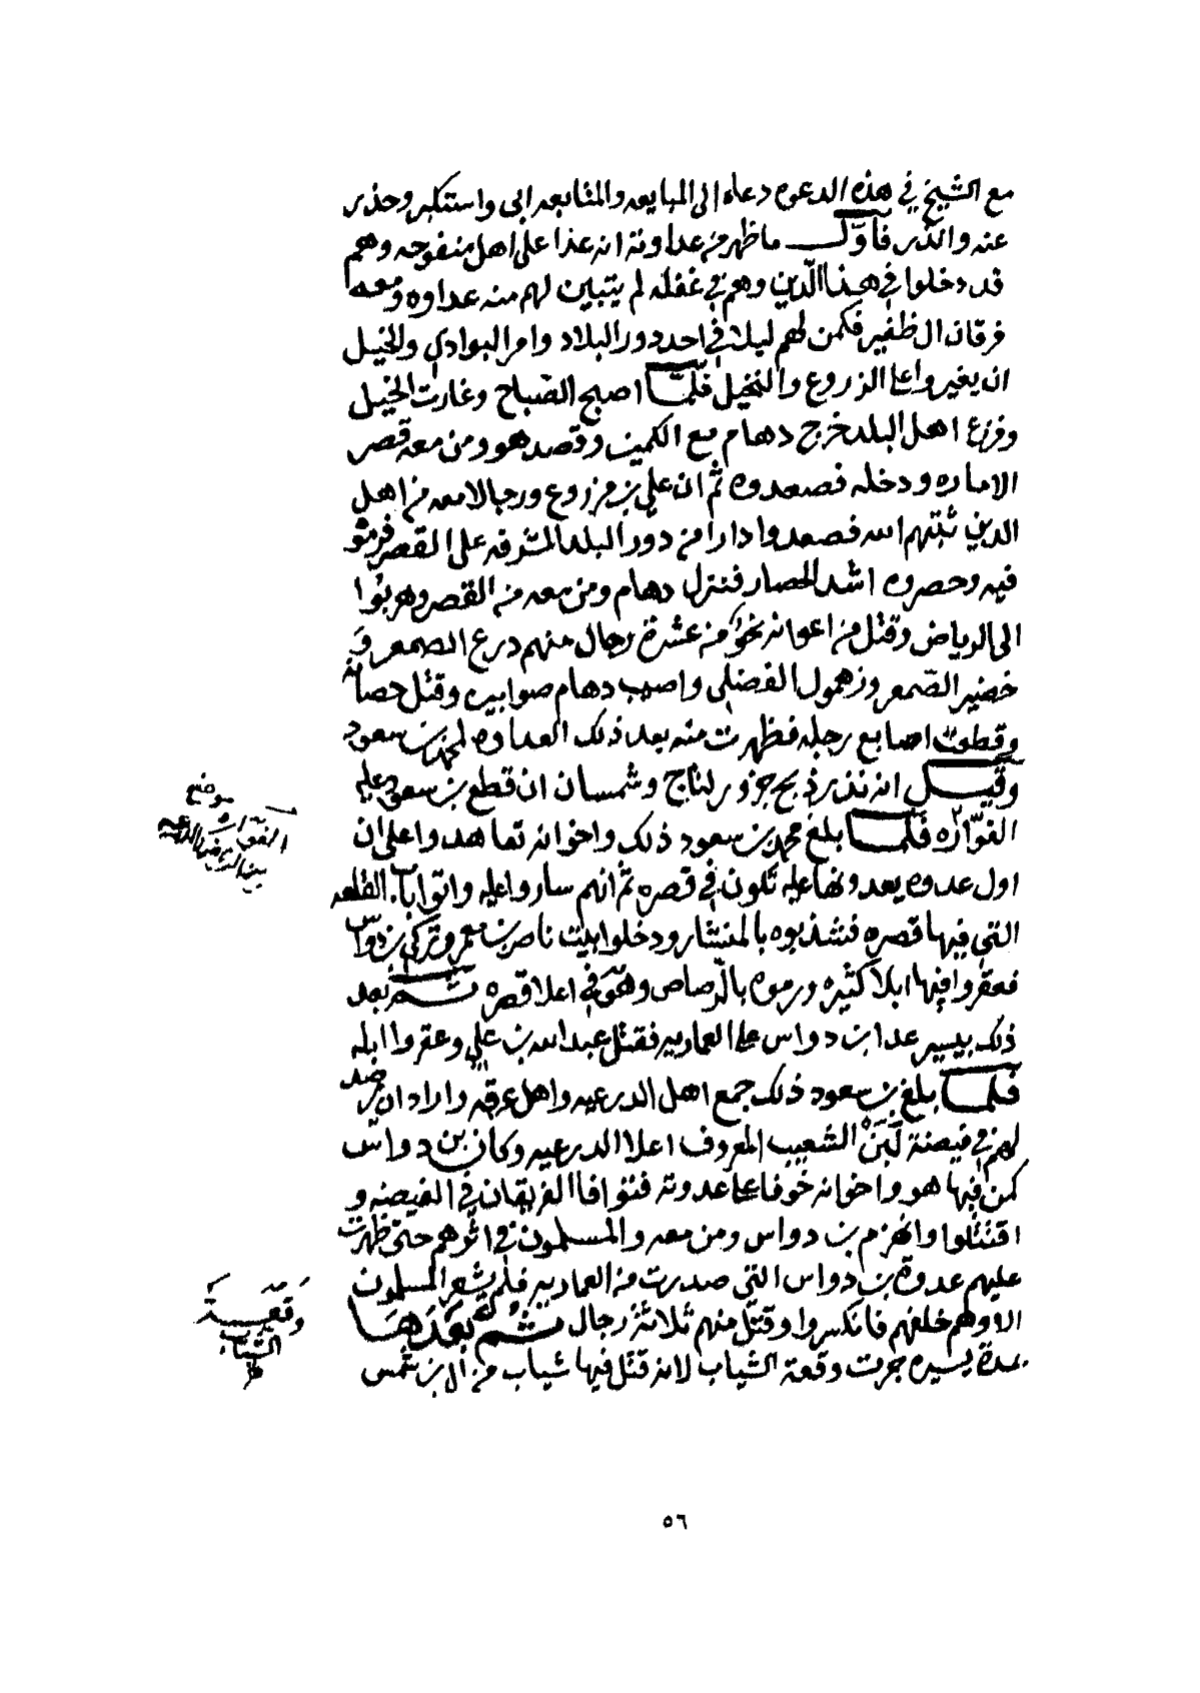 مع الشيخ في هذه الدعوه دعاه الى المبايعه والمتابعه ابى واستكبر وحذر
عنه وانذر فاول ما ظهر من عداوته انه عدا على اهل منفوحه وهم
قد دخلوا في هذا الدين وهم في غفله لم يتبين لهم منه عداوه ومعه
فرقان ال ظفير فكمن لهم ليلا في احد دور البلاد وامر البوادي والخيل
ان يغيروا على الزروع والنخيل فلمّا اصبح الصّباح وغارت الخيل
وفزع اهل البلد خرج دهام مع الكمين وقصد هو ومن معه قصر
الاماره ودخله فصعدوه ثم ان علي بن مزروع ورجالا معه من اهل
الدين ثبتهم الله فصعدوا دارا من دور البلد المشرفه على القصر فرموه
فيه وحصروه اشد الحصار فنزل دهام ومن معه من القصر وهربوا
الى الرياض وقتل من اعوانه نحو من عشرة رجال منهم درع الصمعر و
خضير الصّمعر وزهمول الفضلي واصيب دهام صوابين وقتل حصانه
وقطعت اصابع رجله فظهرت منه بعد ذلك العداوه لمحمد بن سعود
وقيل انه نذر ذبح جزور لتاج وشمسان ان قطع بن سعود عليه
الفوّاره فلما بلغ محمد بن سعود ذلك واخوانه تعاهدوا على ان
اول عدوه يعدونها عليه تكون في قصره ثم انهم ساروا عليه واتوا باب القلعه
التي فيها قصره فشذبوه بالمنشار ودخلوا بيت ناصر بن معمر وتركي بن دواس
فعقروا فيها ابلا كثيره ورموه بالرّصاص وهو في اعلا قصره ثم بعد
ذلك بيسير عدا ابن دواس على العماريه فقتل عبد الله بن علي وعقروا ابله
فلما بلغ بن سعود ذلك جمع اهل الدرعيه واهل عرقه واراد ان يرصد
لهم في فيضة لبن الشعيب المعروف اعلا الدرعيه وكان بن دواس
كمن فيها هو واخوانه خوفا على عدوته فتوافا الفريقان في الفيضه و
اقتتلوا وانهزم بن دواس ومن معه والمسلمون في اثرهم حتى ظهرت
عليهم عدوة بن دواس التي صدرت من العماريه فلم يشعر المسلمون
الا وهم خلفهم فانكسروا وقتل منهم ثلاثة رجال ثم بعدها
بمدة يسيره جرت وقعة الشياب لانه قتل فيها شياب من ال بن شمس
موضع
الفوّاره
بين الرياض والدرعيه
وقعة
الشياب
٥٦